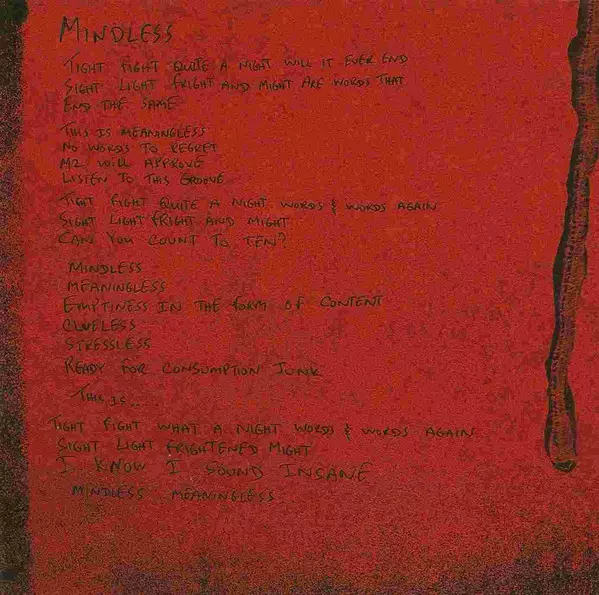 MINDLESS
TIGHT FIGHT QUITE A NIGHT WILL IT EVER END
SIGHT LIGHT FRIGHT AND MIGHT ARE WORDS THAT
END THE SAME
THIS IS MEANINGLESS
NO WORDS TO REGRET
M2 WILL APPROVE
LISTEN TO THIS GROOVE
TIGHT FIGHT QUITE A NIGHT WORDS & WORDS AGAIN
SIGHT LIGHT FRIGHT AND MIGHT
CAN YOU COUNT TO TEN?
MINDLESS
MEANINGLESS
EMPTINESS IN THE FORM OF CONTENT
CLUELESS
STRESSLESS
READY FOR CONSUMPTION JUNK
THIS IS.....
TIGHT FIGHT WHAT A NIGHT WORDS & WORDS AGAIN
SIGHT LIGHT FRIGHTENED MIGHT
I KNOW I SOUND INSANE
MINDLESS MEANINGLESS